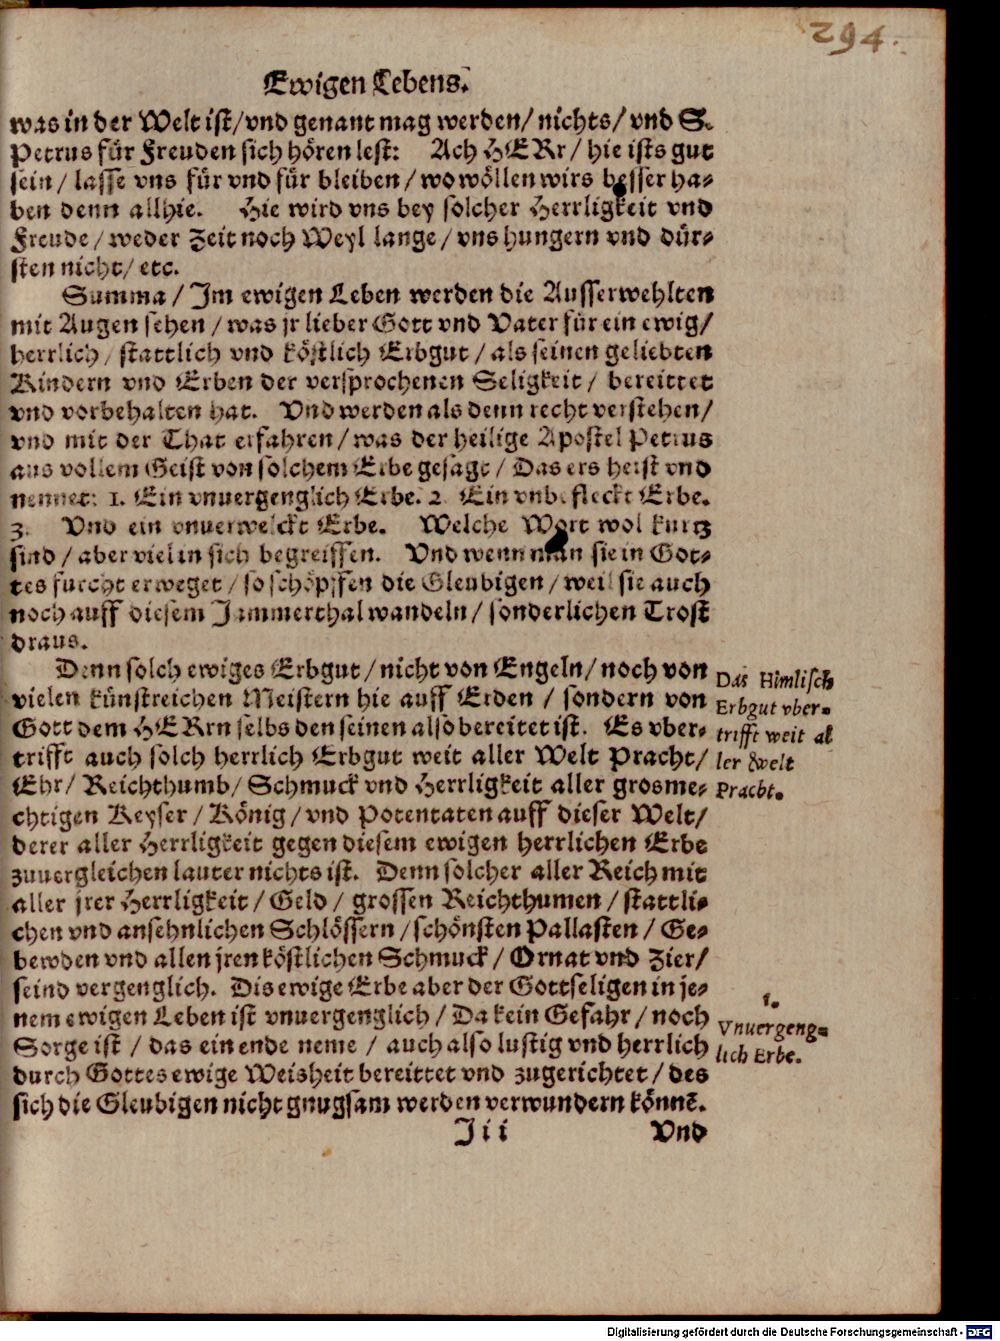 294.
Ewigen Lebens.
was in der Welt ist/vnd genant mag werden/ nichts/ vnd S.
Petrus für Freuden sich hören lest: Ach HERr/ hie ists gut
sein/ lasse vns für vnd für bleiben/ wo wöllen wirs besser ha-
ben denn allhie. Hie wird vns bey solcher Herrligkeit vnd
Freude/ weder Zeit noch Weyl lange/ vns hungern vnd dür-
sten nicht/ etc.
Summa/ Im ewigen Leben werden die Ausserwehlten
mit Augen sehen/ was jr lieber Gott vnd Vater für ein ewig/
herrlich/ stattlich vnd köstlich Erbgut/ als seinen geliebten
Kindern vnd Erben der versprochenen Seligkeit/ bereittet
vnd vorbehalten hat. Vnd werden als denn recht verstehen/
vnd mit der That erfahren/ was der heilige Apostel Petrus
aus vollem Geist von solchem Erbe gesagt/ Das ers heist vnd
nennet: 1. Ein vnuergenglich Erbe. 2. Ein vnbefleckt Erbe.
3. Vnd ein vnuerwelckt Erbe. Welche Wort wol kurtz
sind/ aber viel in sich begreiffen. Vnd wenn man sie in Got-
tes furcht erweget/ so schöpffen die Gleubigen/ weil sie auch
noch auff diesem Jammerthal wandeln/ sonderlichen Trost
draus.
Denn solch ewiges Erbgut/ nicht von Engeln/ noch von
vielen künstreichen Meistern hie auff Erden/ sondern von
Gott dem HERrn selbs den seinen also bereitet ist. Es vber-
trifft auch solch herrlich Erbgut weit aller Welt Pracht/
Ehr/ Reichthumb/ Schmuck vnd Herrligkeit aller grosme-
chtigen Keyser/ König/ vnd Potentaten auff dieser Welt/
derer aller Herrligkeit gegen diesem ewigen herrlichen Erbe
zuuergleichen lauter nichts ist. Denn solcher aller Reich mit
aller jrer Herrligkeit/ Geld/ grossen Reichthumen/ stattli-
chen vnd ansehnlichen Schlössern/ schönsten Pallasten/ Ge-
bewden vnd allen jren köstlichen Schmuck/ Ornat vnd Zier/
seind vergenglich. Dis ewige Erbe aber der Gottseligen in je-
nem ewigen Leben ist vnuergenglich/ Da kein Gefahr/ noch
Sorge ist/ das ein ende neme/ auch also lustig vnd herrlich
durch Gottes ewige Weisheit bereittet vnd zugerichtet/ des
sich die Gleubigen nicht gnugsam werden verwundern könnē.
Das Himlisch
Erbgut vber-
trifft weit al
ler Welt
Pracht.
1.
Vnuergeng-
lich Erbe.
J ii
Vnd
Digitalisierung gefördert durch die Deutsche Forschungsgemeinschaft - DFG